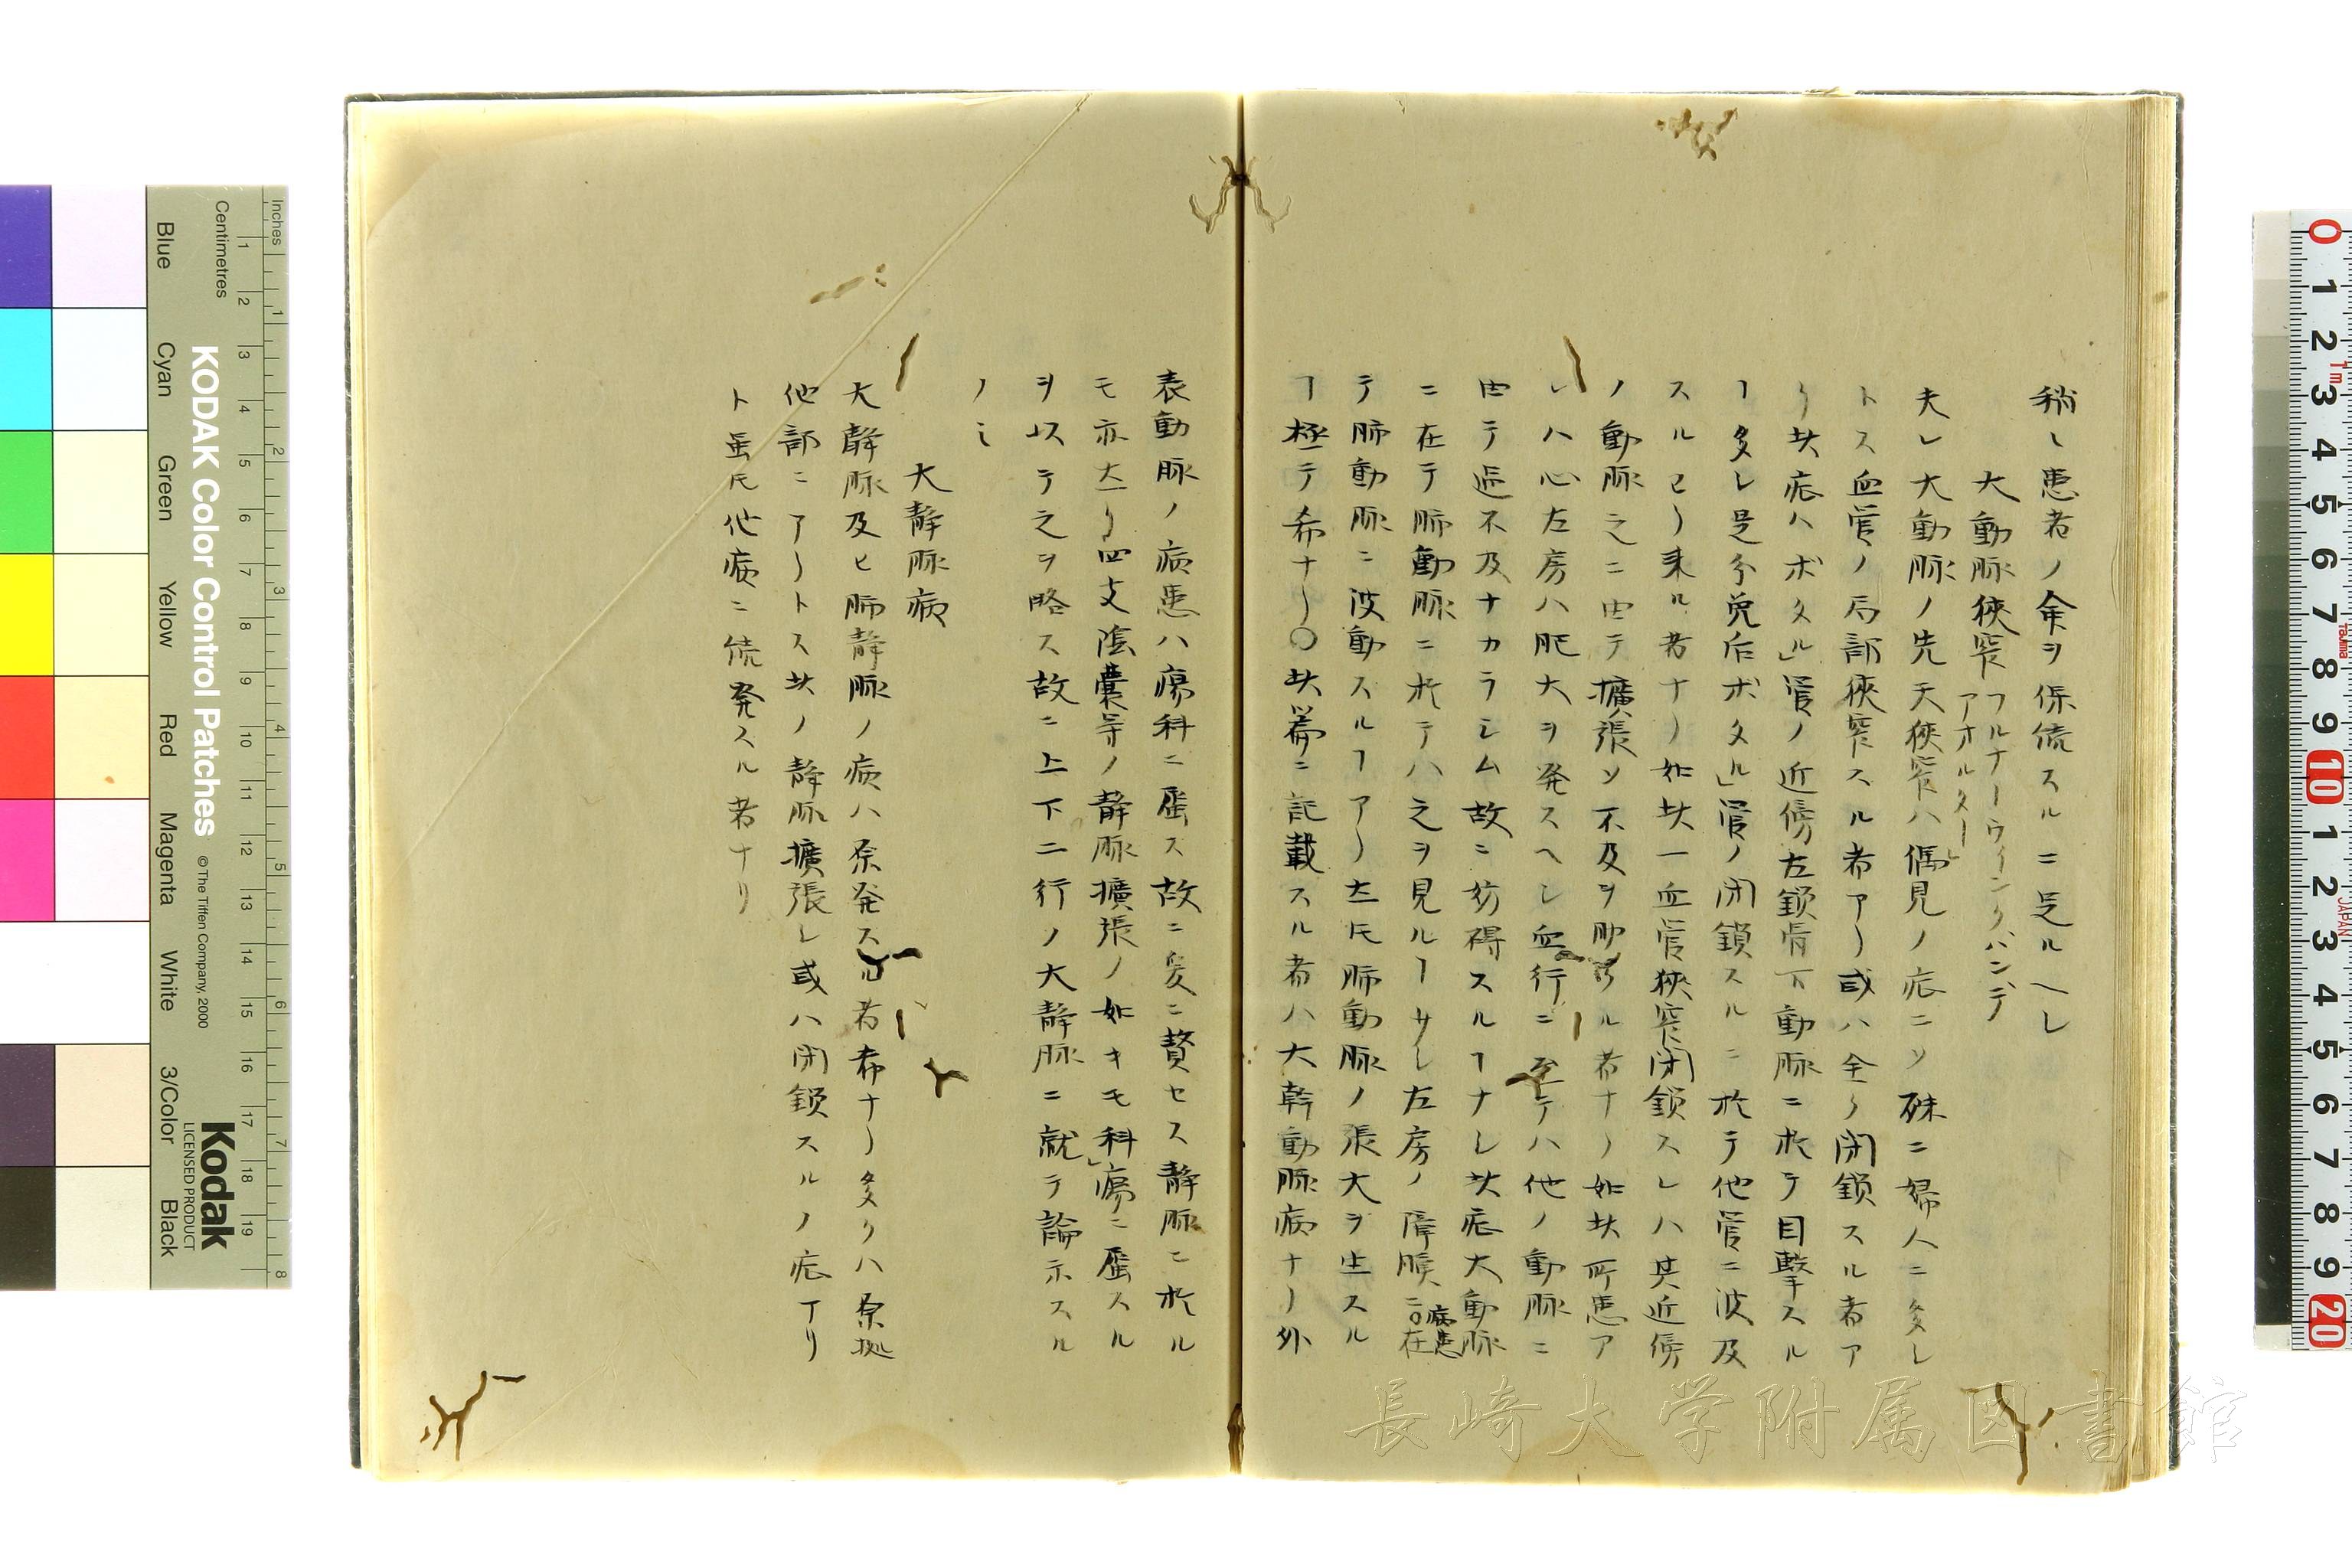 稍〻患者ノ余ヲ保続スルニ足ルヘし
大動脈狹窄 フルナーウイングハンデアオルター
夫レ大動脈ノ先天狹窄ハ偶見ノ症ニソ殊ニ婦人ニ多し
トス血管ノ局部狹窄スル者アリ或ハ全ク閉鎖スル者ア
リ此症ハボタル」管ノ近傍左鎖骨下動脈ニ於テ目撃スル
ヿ多レ是分娩后ボタル」管ノ閉鎖スルニ於テ他管ニ波及
スルヨリ来ル者ナリ如此一血管狹窄閉鎖スレハ其近傍
ノ動脈之ニ由テ擴張ソ不及ヲ助クル者ナリ如此所患ア
レハ心左房ハ肥大ヲ発スヘレ血行ニ至テハ他ノ動脈ニ
由テ過不及ナカラシム故ニ妨碍スルヿナレ此症大動脈
ニ在テ肺動脈ニ於テハ之ヲ見ルヿ少レ左房ノ障膜ニ病患在
テ肺動脈ニ波動スルヿアリ𪜈肺動脈ノ張大ヲ生スル
ヿ極テ希ナリ〇此篇ニ記載スル者ハ大幹動脈病ナリ外
表動脈ノ病患ハ瘍科ニ属ス故ニ爰ニ贅セス静脈ニ於ル
モ亦然リ四支陰嚢等ノ静脈擴張ノ如キモ科」瘍ニ属スル
ヲ以テ之ヲ略ス故ニ上下二行ノ大静脈ニ就テ論示スル
ノミ
大静脈病
大静脈及ヒ肺静脈ノ病ハ原発スル者希ナリ多クハ原拠
他部ニアリトス此ノ静脈擴張レ或ハ閉鎖スルノ症アリ
ト虽𪜈他病ニ続発スル者ナリ
KODAK Color Control Patches
© The Tiffen Company, 2000
Kodak
LICENSED PRODUCT
Inches
Centimetres
Blue
Cyan
Green
Yellow
Red
Magenta
White
3/Color
Black
長崎大学附属図書館